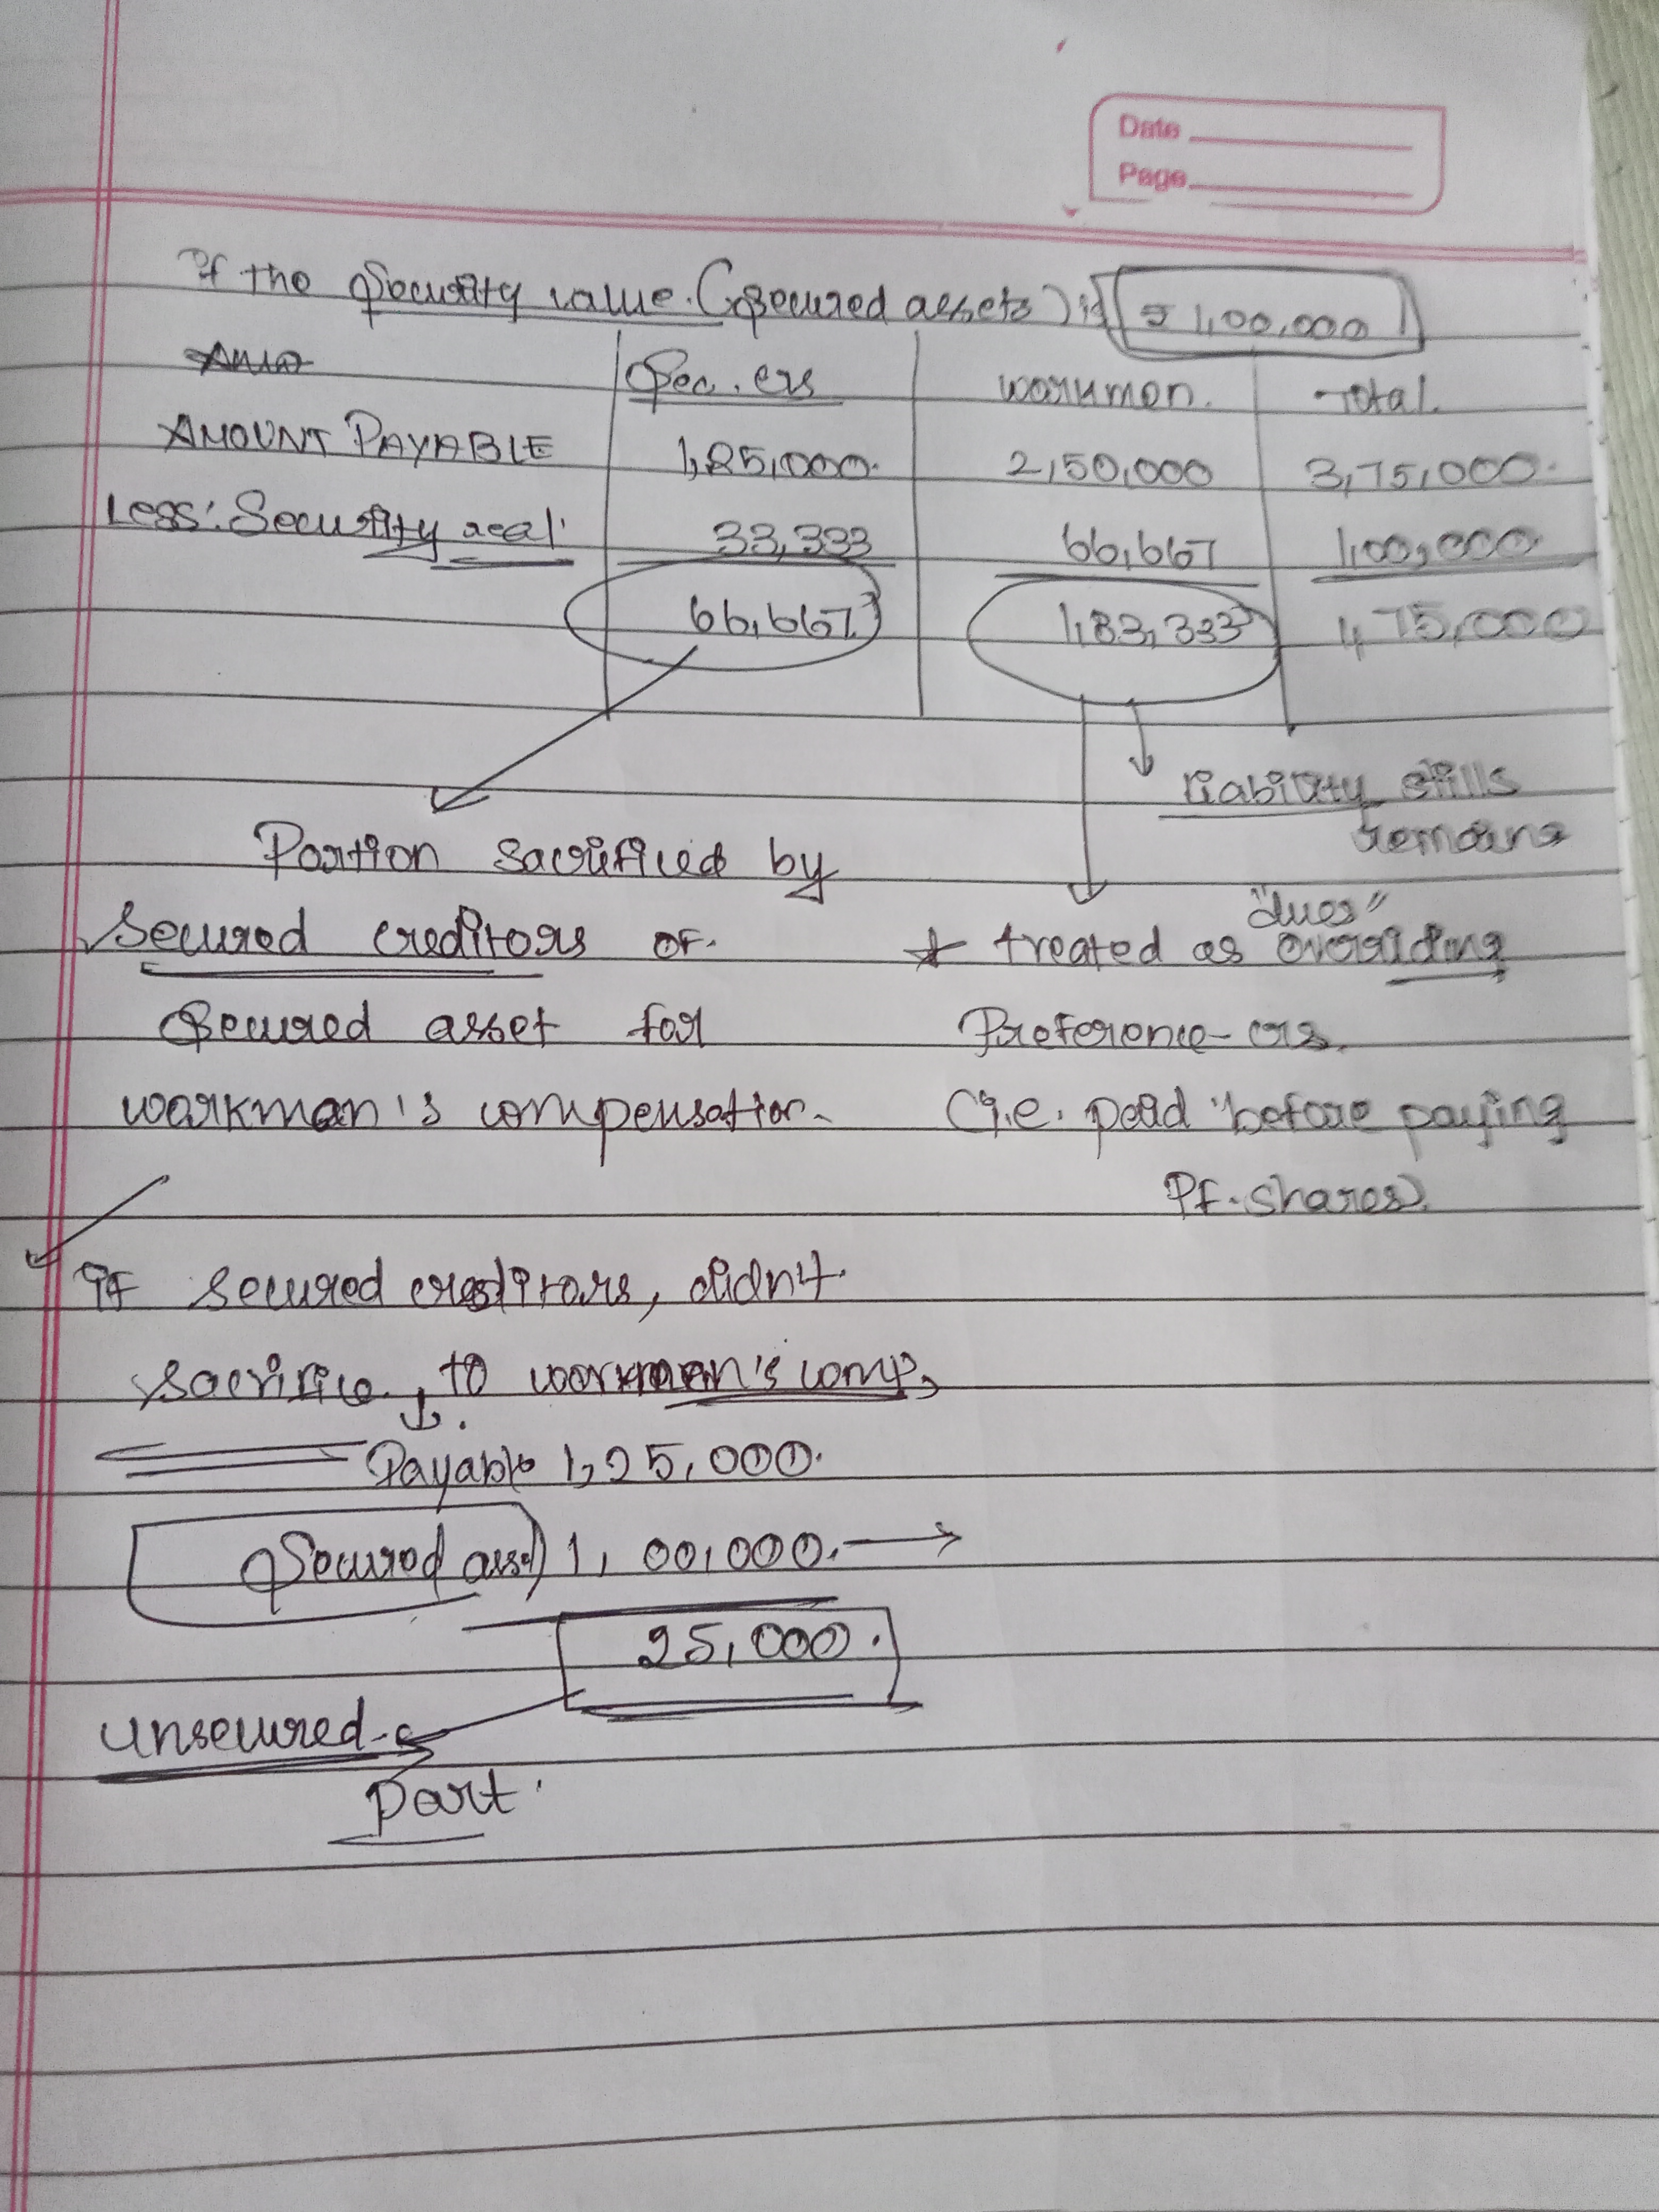 Date
Page
If the Security value. (secured assets) is ₹ 1,00,000
Sec. crs workmen. Total.
AMOUNT PAYABLE 1,25,000. 2,50,000 3,75,000.
Less: Security real. 33,333 66,667 1,00,000
66,667 1,83,333 4,75,000
liability stills
remains
Portion sacrificed by
Secured creditors of.
Secured asset for
workman's compensation.
"dues"
* treated as overriding
Preference crs.
(i.e. paid before paying
Pf. shares).
If secured creditors, didn't
sacrifice, to workmen's comp,
Payable 1,25,000.
Secured asset 1,00,000. →
25,000.
unsecured
Part.